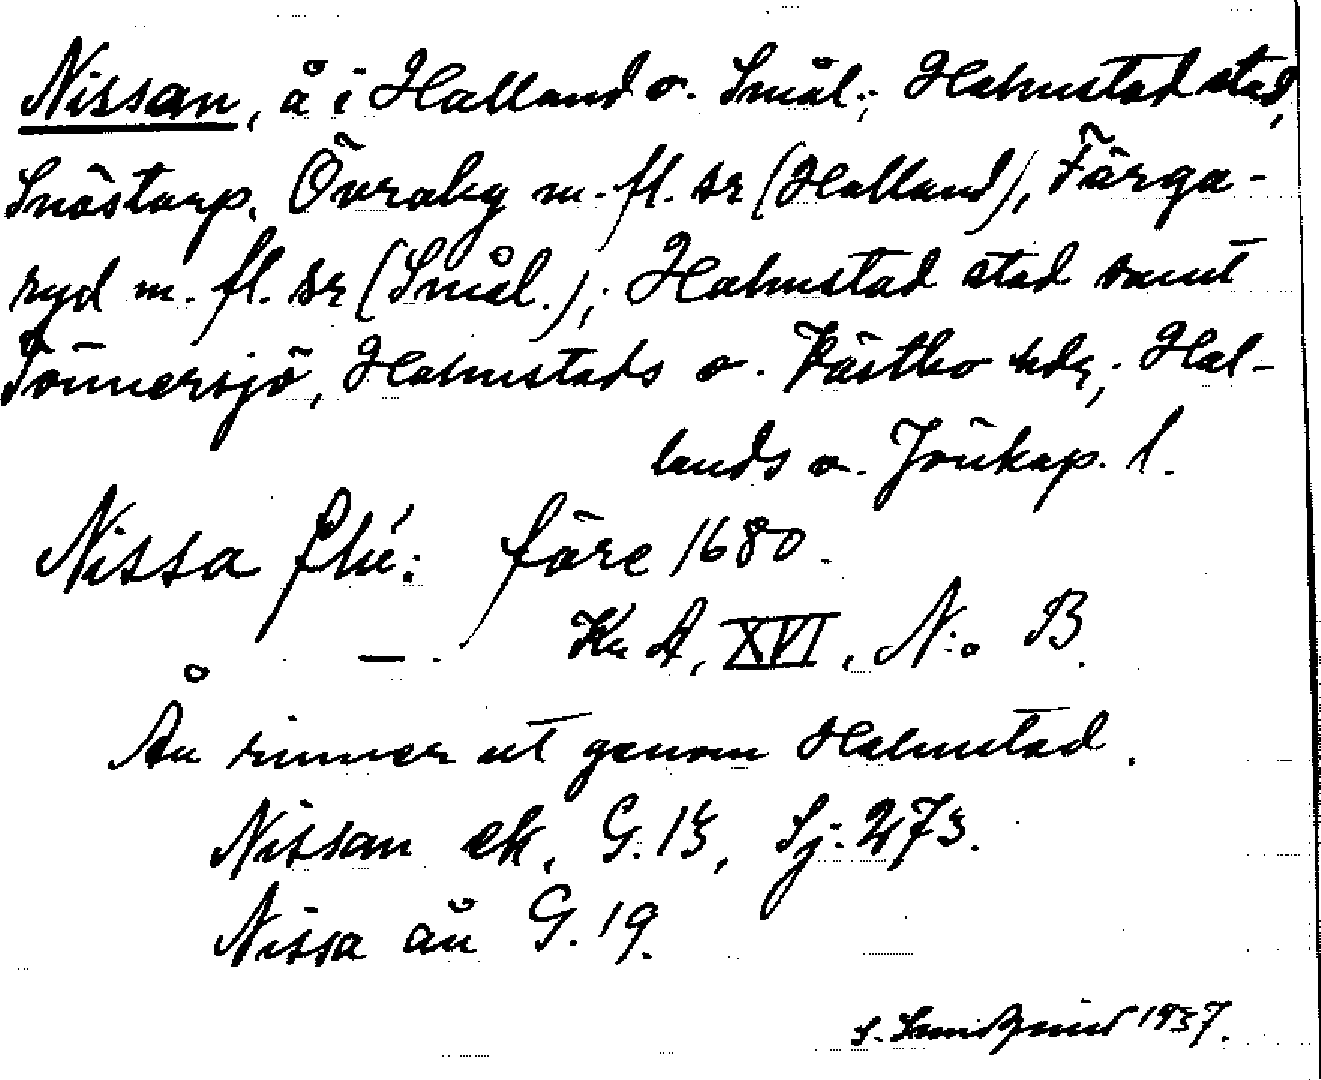 Nissan, å i Halland o. Smål.; Halmstad stad,
Snöstorp, Övraby m. fl. sr (Halland), Färga-
ryd m. fl. sr (Smål.); Halmstad stad samt
Tönnersjö, Halmstads o. Västbo hdr; Hal-
lands o. Jönköp. l.
Nissa flu: före 1680.
— KrA, XVI, N:o B.
Ån rinner ut genom Halmstad.
Nissan ek. G. 15, Sj. 273.
Nissa ån G. 19.
S. 1937.